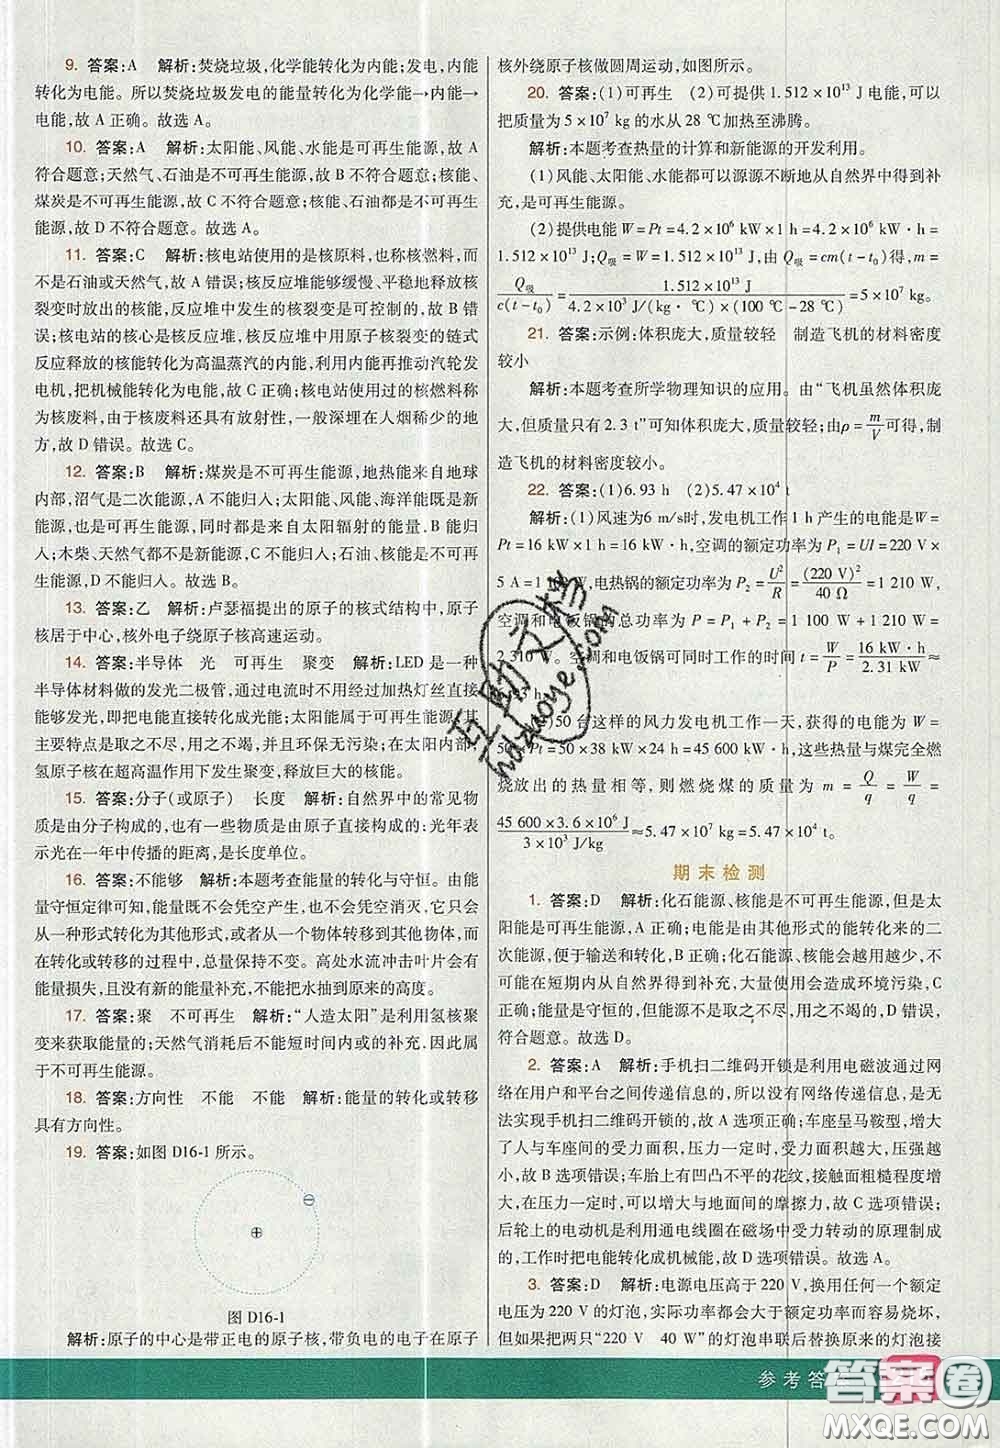 9. 答案:A 解析:焚烧垃圾,化学能转化为内能;发电,内能
转化为电能。所以焚烧垃圾发电的能量转化为化学能→内能→
电能,故 A 正确。故选 A。
10. 答案:A 解析:太阳能、风能、水能是可再生能源,故 A
符合题意;天然气、石油是不可再生能源,故 B 不符合题意;核能、
煤炭是不可再生能源,故 C 不符合题意;核能、石油都是不可再生
能源,故 D 不符合题意。故选 A。
11. 答案:C 解析:核电站使用的是核原料,也称核燃料,而
不是石油或天然气,故 A 错误;核反应堆能够缓慢、平稳地将核子
裂变时放出的核能,反应堆中发生的核裂变是可控制的,故 B 错
误;核电站的核心是核反应堆,其中用原子核裂变或聚变的链式
反应释放的核能转化为高温蒸汽的内能,利用内能再推动汽轮发
电机,把机械能转化为电能,故 C 正确;核电站使用过的核燃料称
为核废料,由于核废料还具有放射性,一般深埋在人烟稀少的地
方,故 D 错误。故选 C。
12. 答案:B 解析:煤炭是不可再生能源,地热能来自地球
内部,沼气是二次能源,A 不能归入;太阳能、风能、海洋能既是新
能源,也是可再生能源,同时都是来自太阳辐射的能量,B 能归
入;木柴、天然气都不是新能源,C 不能归入;石油、核能是不可再
生能源,D 不能归入。故选 B。
13. 答案:乙 解析:卢瑟福提出的原子的核式结构中,原子
核居于中心,核外电子绕原子核高速运动。
14. 答案:半导体 光 可再生 聚变 解析:LED 是一种
半导体材料做的发光二极管,通过电流时不用经过加热灯丝直接
发光,即把电能直接转化成光能;太阳能属于可再生能源,其
主要特点是取之不尽,用之不竭,并且环保无污染;在太阳内部,
氢原子核在超高温作用下发生聚变,释放巨大的核能。
15. 答案:分子(或原子) 长度 解析:自然界中的常见物
质是由分子构成的,也有一些物质是由原子直接构成的;光年表
示光在一年中传播的距离,是长度单位。
16. 答案:不能够 解析:本题考查能量的转化与守恒。由能
量守恒定律可知,能量既不会凭空产生,也不会凭空消灭,它只会
从一种形式转化为其他形式,或者从一个物体转移到其他物体,
在转化或转移的过程中,总量保持不变。高处水流冲击叶片会有
能量损失,且没有新的能量补充,不能把水抽到原来的高度。
17. 答案:聚 不可再生 解析:“人造太阳”是利用氢核聚
变来获取能量的;天然气消耗后不能短时间内或的补充,因此属
于不可再生能源。
18. 答案:方向性 不能 不能 解析:能量的转化或转移
具有方向性。
19. 答案:如图 D16-1 所示。
图 D16-1
解析:原子的中心是带正电的原子核,带负电的电子在原子
核外绕原子核做圆周运动,如图所示。
20. 答案:(1)可再生 (2)可提供 1.512×10¹³ J 电能,可以
把质量为 5×10⁷ kg 的水从 28 ℃加热至沸腾。
解析:本题考查热量的计算和新能源的开发利用。
(1)风能、太阳能、水能可以源源不断地从自然界中得到补
充,是可再生能源。
(2)提供电能 W=Pt=4.2×10⁶ kW×1 h=4.2×10⁶ kW·h=
1.512×10¹³ J;Q吸=W=1.512×10¹³ J,由 Q吸=cm(t-t₀)得,m=
Q吸/c(t-t₀)=1.512×10¹³ J/4.2×10³ J/(kg·℃)×(100 ℃-28 ℃)=5×10⁷ kg。
21. 答案:示例:体积庞大,质量较轻 制造飞机的材料密度
较小
解析:本题考查所学物理知识的应用。由“飞机虽然体积庞
大,但质量只有 2.3 t”可知体积庞大,质量较轻;由ρ=m/V可得,制
造飞机的材料密度较小。
22. 答案:(1)6.93 h (2)5.47×10⁴ t
解析:(1)风速为6 m/s时,发电机工作 1 h 产生的电能是W=
Pt=16 kW×1 h=16 kW·h,空调的额定功率为 P₁=UI=220 V×
5 A=1 100 W,电热锅的额定功率为 P₂=U²/R=(220 V)²/40 Ω=1 210 W,
空调和电饭锅的总功率为 P=P₁+P₂=1 100 W+1 210 W=
2 310 W。空调和电饭锅可同时工作的时间 t=W/P=16 kW·h/2.31 kW≈
6.93 h
(2)50 台这样的风力发电机工作一天,获得的电能为 W=
50×Pt=50×38 kW×24 h=45 600 kW·h,这些热量与煤完全燃
烧放出的热量相等,则燃烧煤的质量为 m=Q/q=W/q=
45 600×3.6×10⁶ J/3×10³ J/kg≈5.47×10⁷ kg=5.47×10⁴ t。
期末检测
1. 答案:D 解析:化石能源、核能是不可再生能源,但是太
阳能是可再生能源,A 正确;电能是由其他形式的能转化来的二
次能源,便于输送和转化,B 正确;化石能源、核能会越用越少,不
可能在短期内从自然界得到补充,且大量使用会造成环境污染,C
正确;能量是守恒的,但能源不是取之不尽,用之不竭的,D 错误,
符合题意。故选 D。
2. 答案:A 解析:手机扫二维码开锁是利用电磁波通过网
络在用户和平台之间传递信息的,所以没有网络传递信息,是无
法实现手机扫二维码开锁的,故 A 选项正确;车座呈马鞍型,增大
了人与车座间的受力面积,压力一定时,受力面积越大,压强越
小,故 B 选项错误;车胎上有凹凸不平的花纹,接触面粗糙程度增
大,在压力一定时,可以增大与地面间的摩擦力,故 C 选项错误;
后轮上的电动机是利用通电线圈在磁场中受力转动的原理制成
的,工作时把电能转化成机械能,故 D 选项错误。故选 A。
3. 答案:D 解析:电源电压高于 220 V,换用任何一个额定
电压为 220 V 的灯泡,实际功率都会大于额定功率而容易烧坏,
但如果把两只“220 V 40 W”的灯泡串联后替换原来的灯泡接
参考答
互助文档
hdzuoye.com
答案圈
MXQE.COM